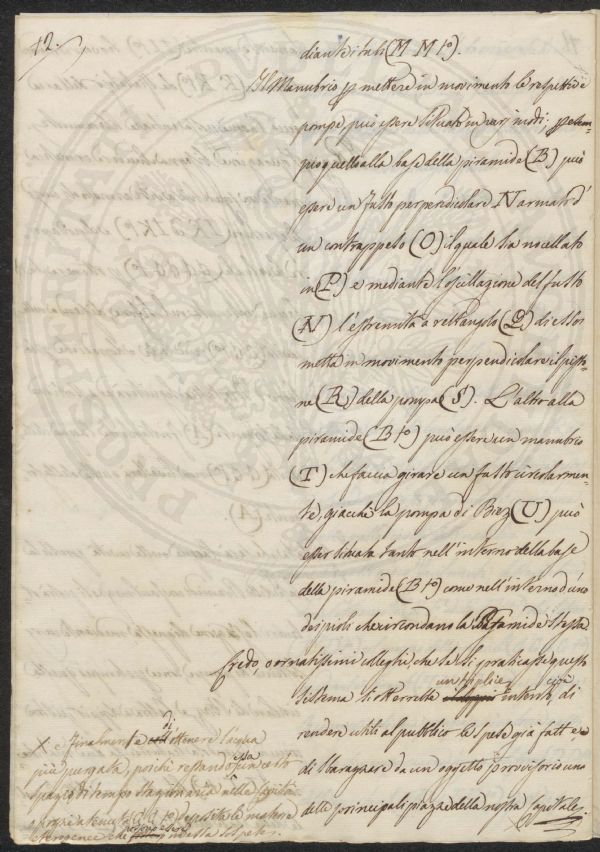 12.
diante i tubi (M M 1º).
Il Manubrio p mettere in movimento le respettive
pompe, può essere situato in varj modi; p esem-
pio quello alla base della piramide (B) può
essere un fusto perpendicolare N armato d'
un contrappeso (O) il quale sia nocellato
in (P) e mediante l'oscillazione del fusto
(N) l'estremità a rettangolo (Q) di esso
metta in movimento perpendicolare il pisto-
ne (R) della pompa (S). L'altro alla
piramide (B 1º) può essere un manubrio
(T) che faccia girare un fusto circolarmen-
te, giacchè la pompa di Brez (U) può
esser situata tanto nell'interno della base
della piramide (B 1º) come nell'interno d'uno
dei pioli che circondano la Piramide stessa
Credo, o ornatissimi colleghi, che se si praticasse questo
sistema si otterrebbe un triplice intento, cioè di
rendere utili al pubblico le spese già fatte e
di sbarazzare da un oggetto provvisorio una
delle principali piazze della nostra Capitale
X e finalmente di ottenere l'acqua
più purgata, poichè restando essa per certo
spazio di tempo stagnaria nelle
deposita le materie
eterogenee che possono essere in essa sospese.